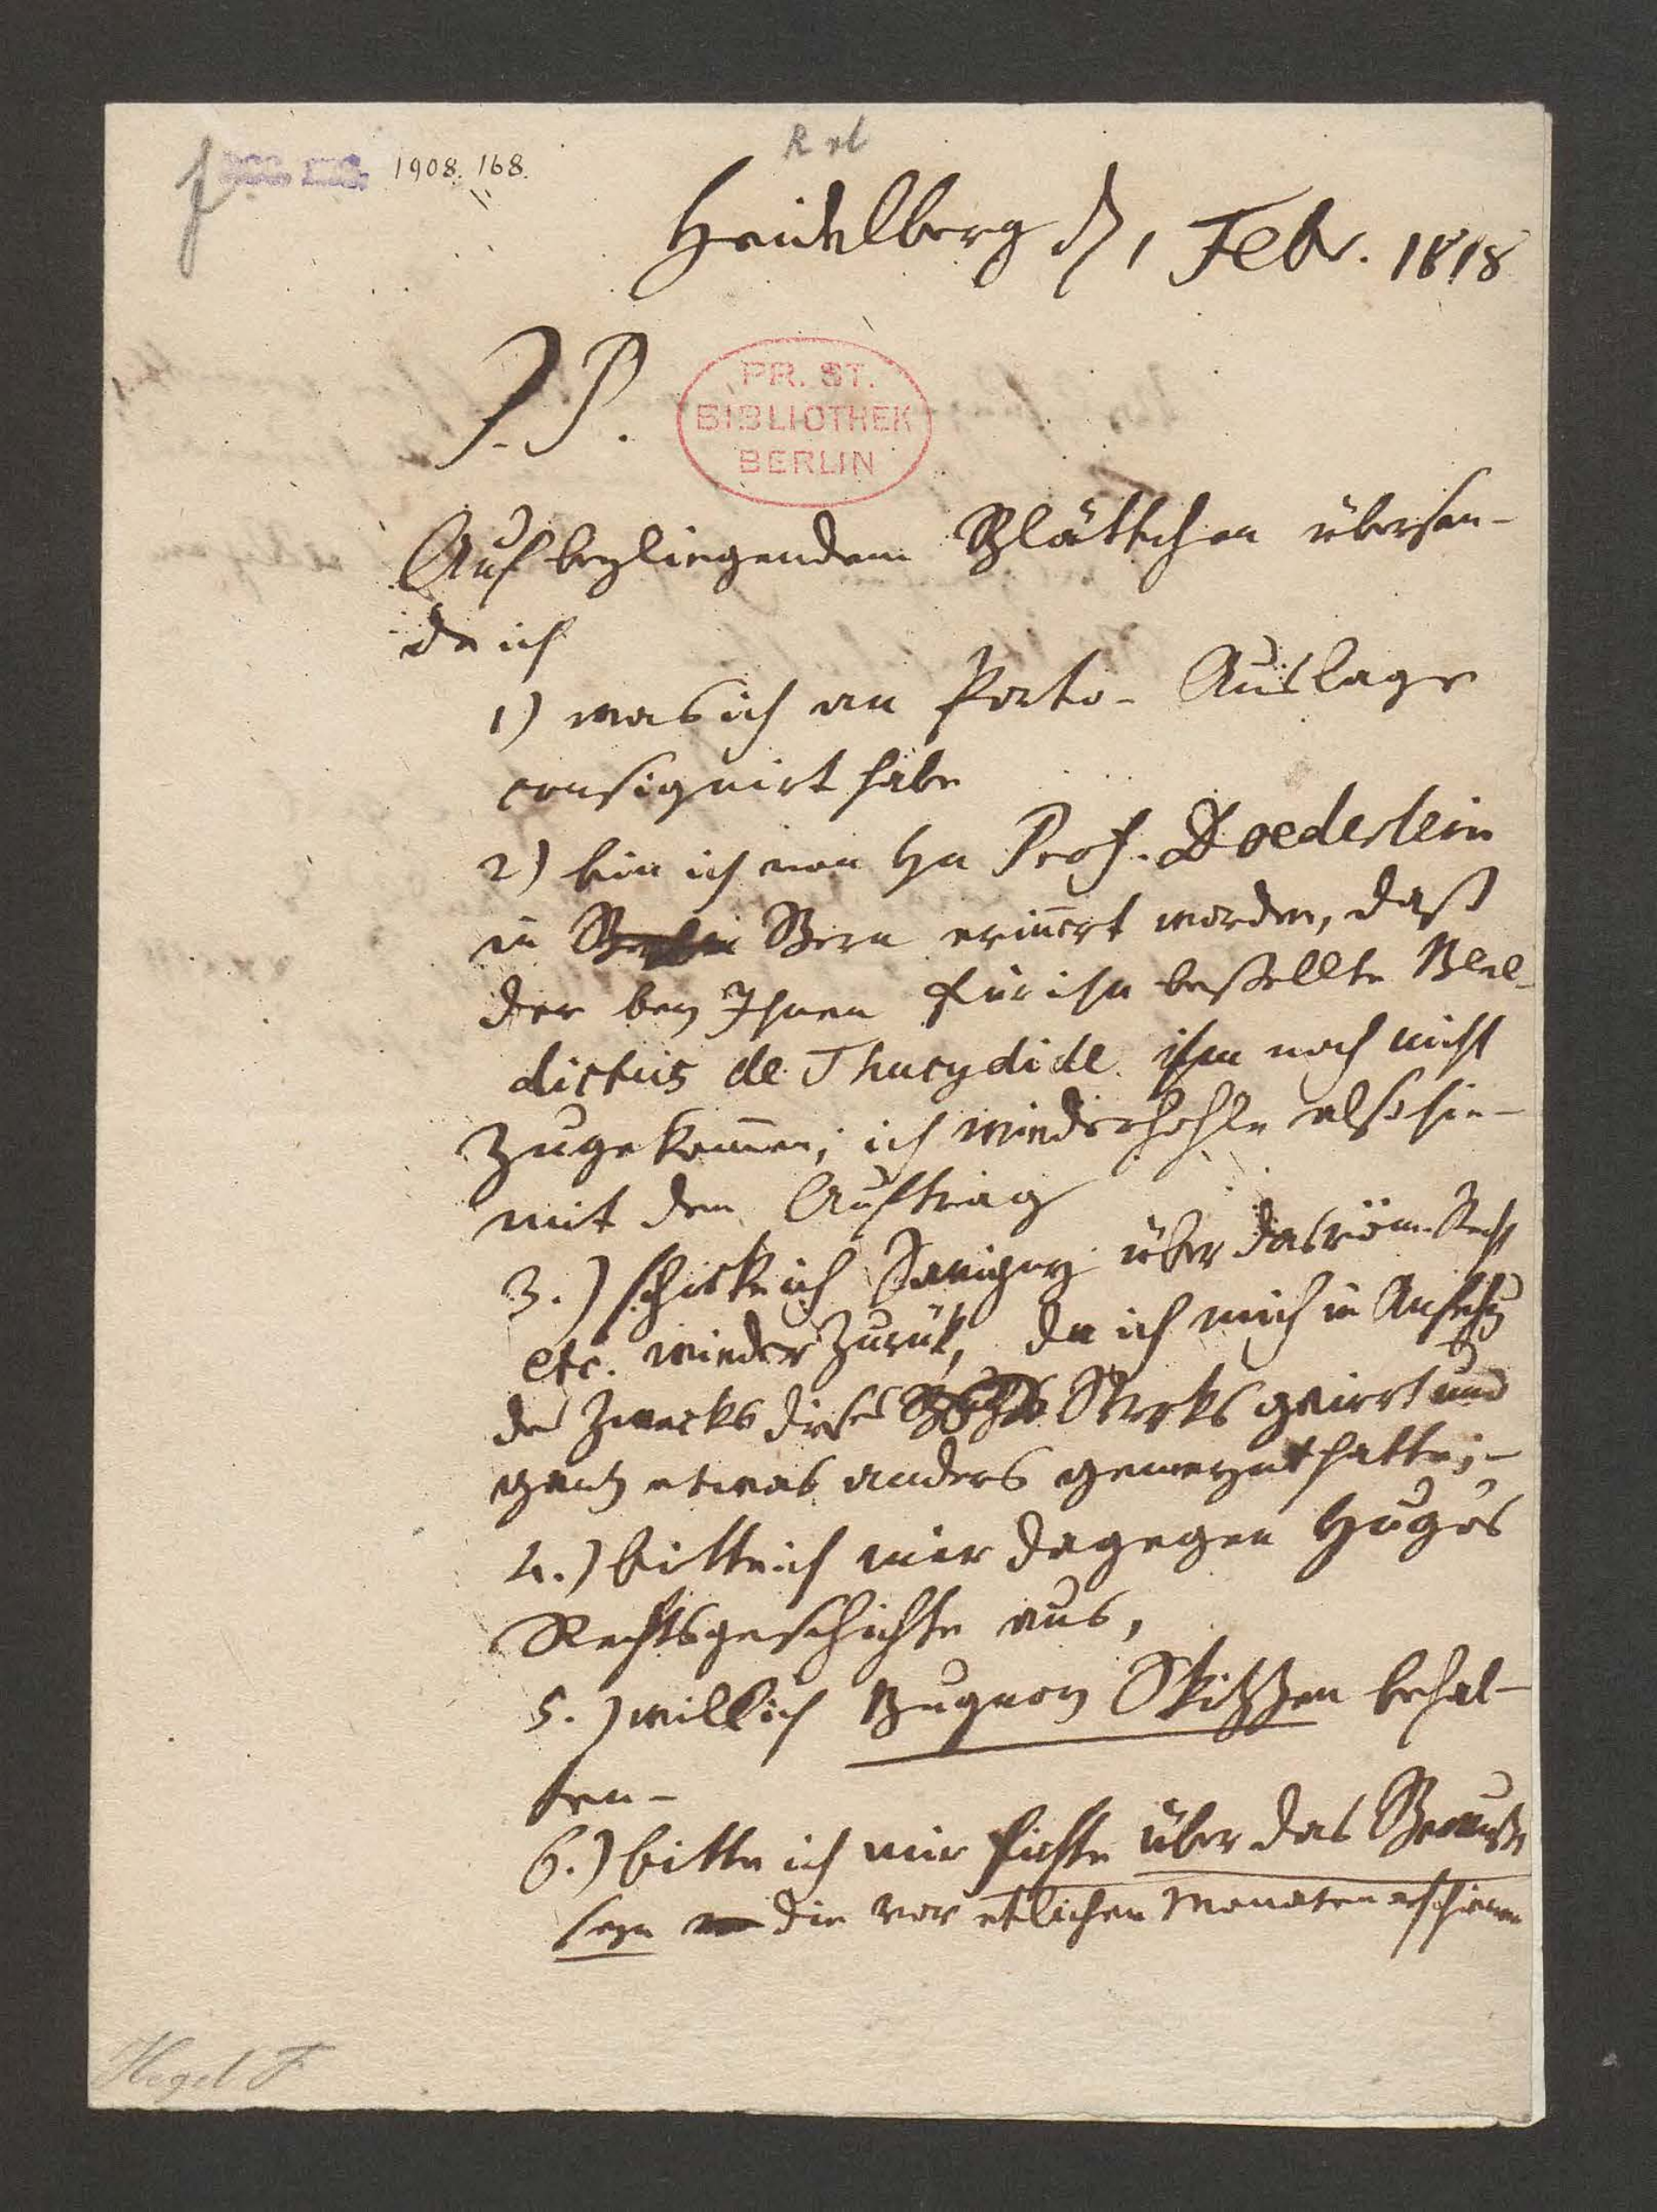 1908. 168.
Heidelberg d 1 Febr. 1818
P. P.
PR. ST.
BIBLIOTHEK
BERLIN
Auf beyliegendem Blättchen übersen-
de ich
1) was ich an Porto-Auslage
consignirt habe
2) bin ich von Hn Prof. Doederlein
in Berlin Bern erinnert worden, daß
der bey Ihnen für ihn bestellte Bene-
dictus de Thucydide ihm noch nicht
zugekommen; ich wiederhohle also hie-
mit den Auftrag
3.) schicke ich Savigny über das röm. Recht
etc. wieder zurük, da ich mich in Ansehg
des Zwecks dieses Werks geirrt und
ganz etwas anders gemeynt hatte; –
4.) bitte ich mir dagegen Hugo's
Rechtsgeschichte aus,
5.) will ich Skitzen behal-
ten –
6.) bitte ich mir Fichte über das Bewußt
seyn die vor etlichen Monaten erschienen
Hegel F